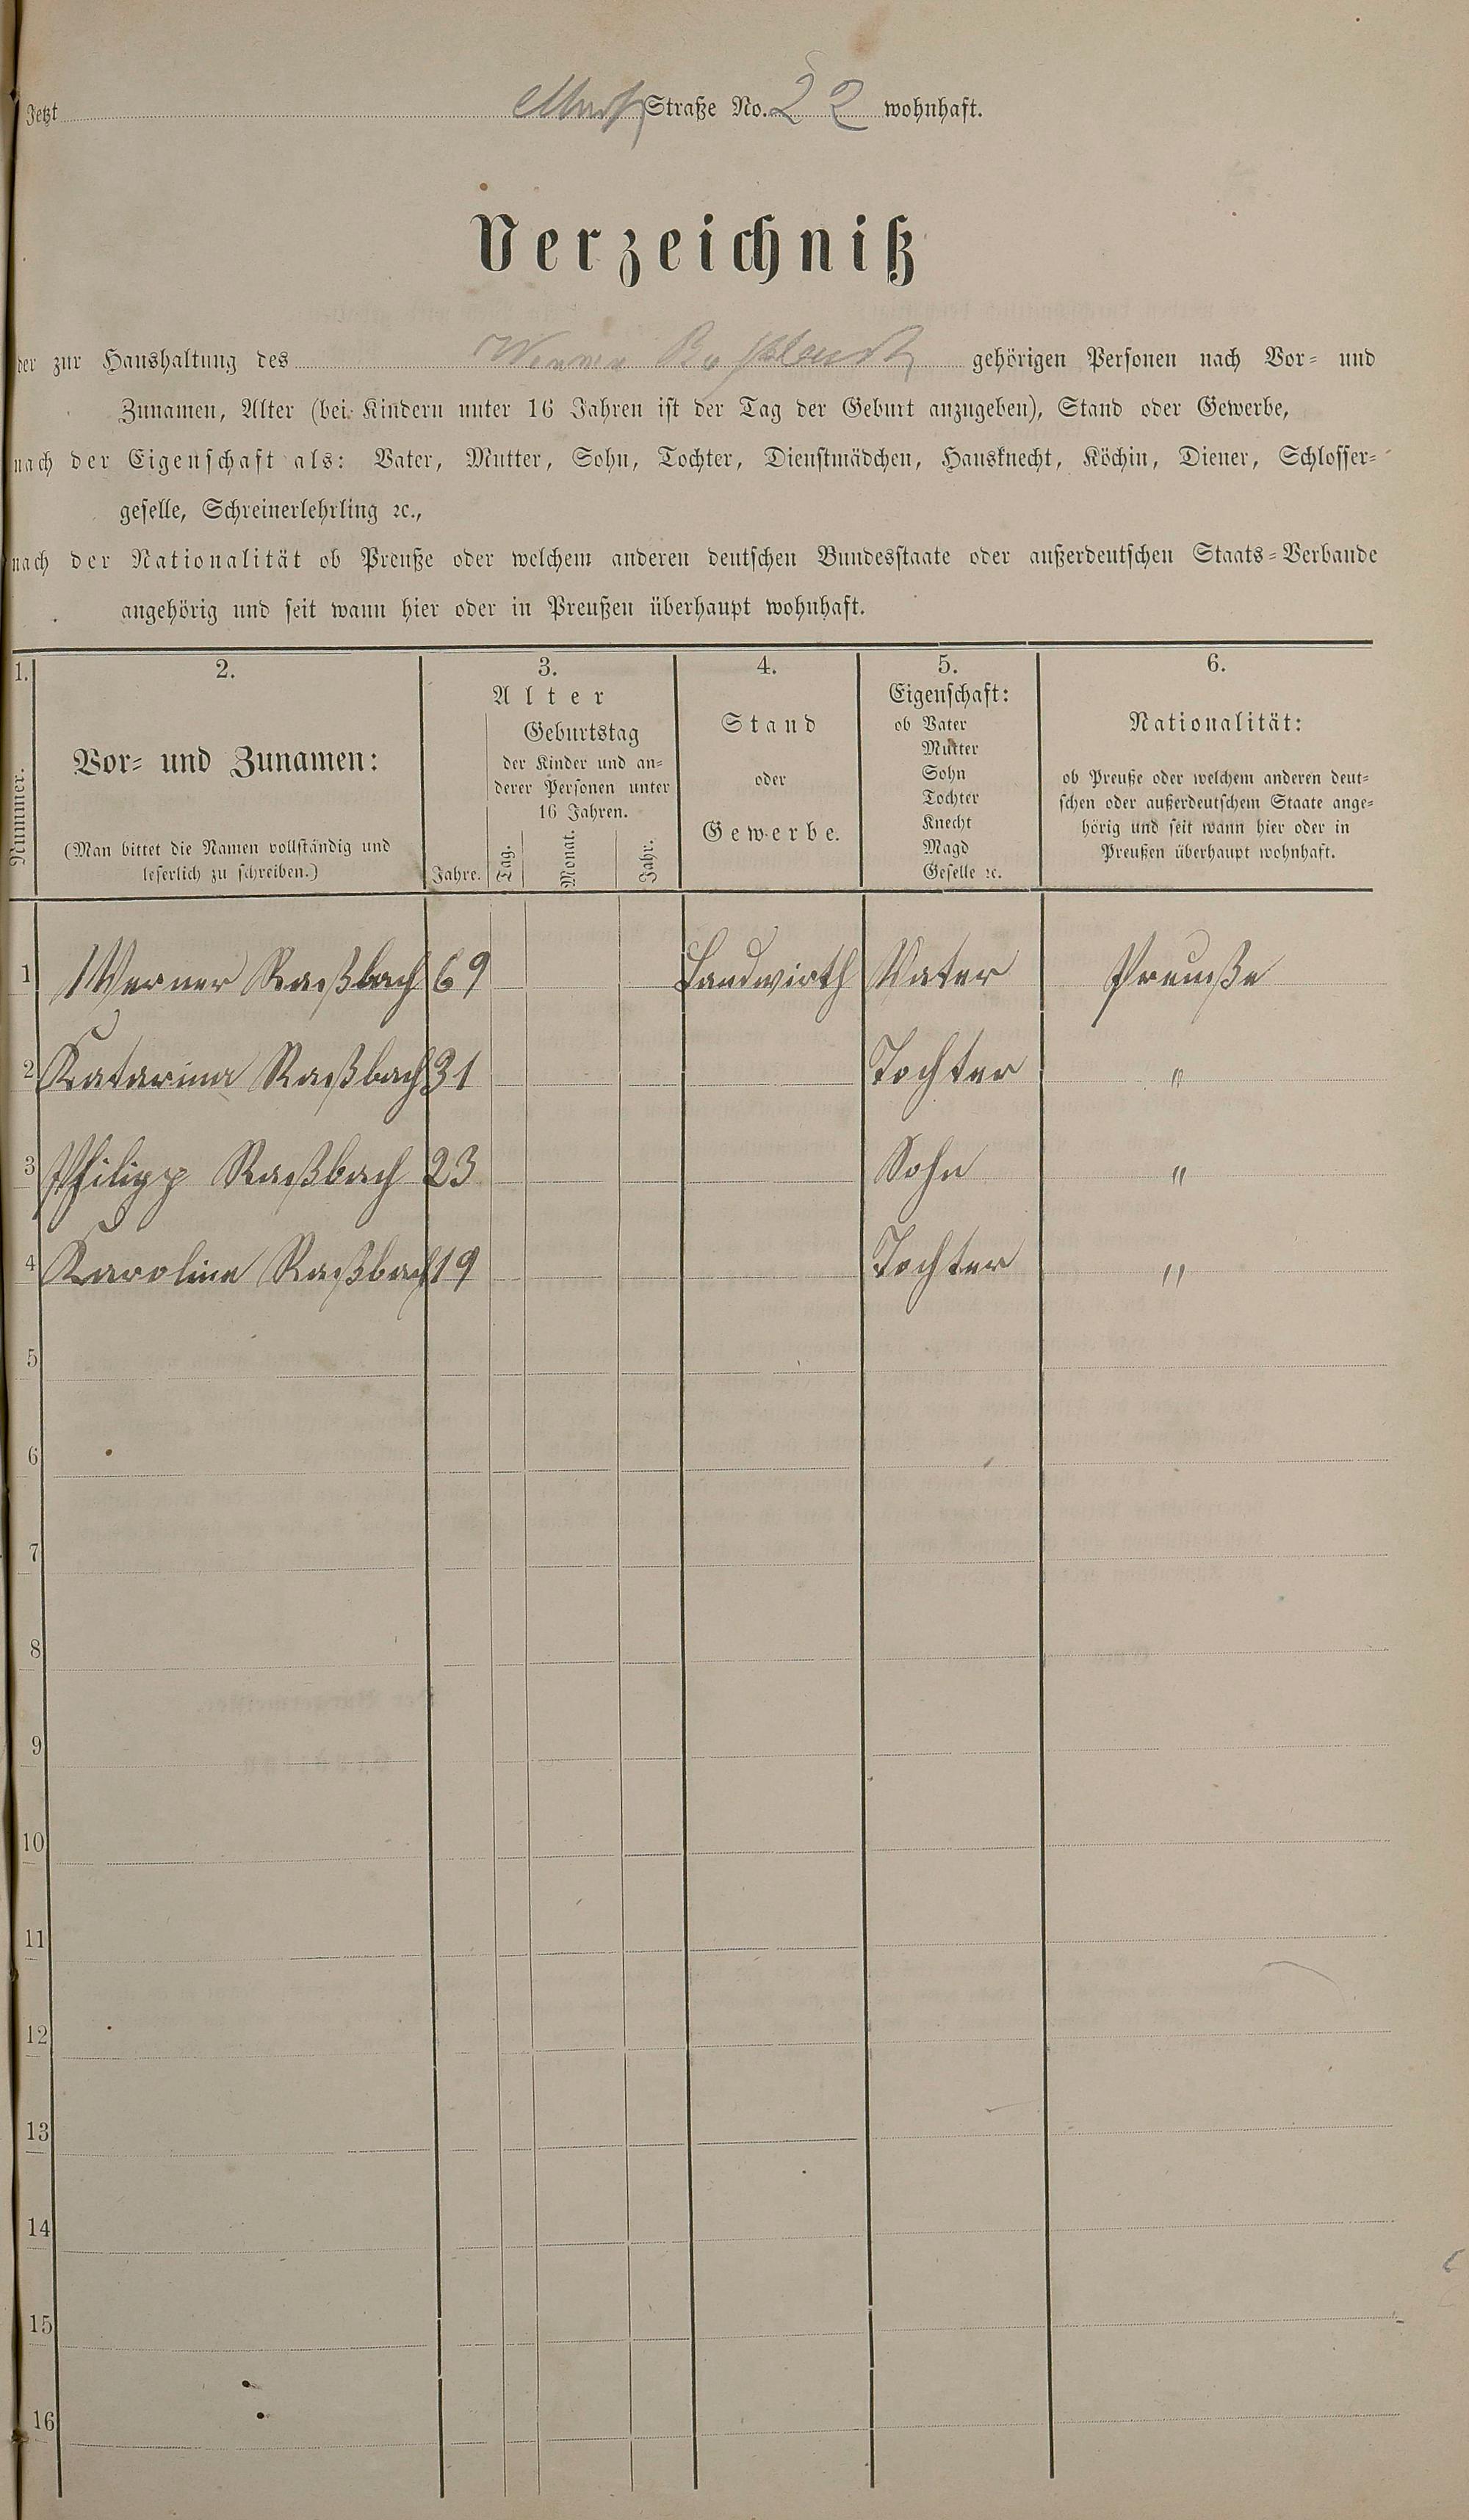 Jetzt Straße No. 22 wohnhaft.
Verzeichniß
der zur Haushaltung des Werner Raßbach gehörigen Personen nach Vor- und
Zunamen, Alter (bei Kindern unter 16 Jahren ist der Tag der Geburt anzugeben), Stand oder Gewerbe,
nach der Eigenschaft als: Vater, Mutter, Sohn, Tochter, Dienstmädchen, Hausknecht, Köchin, Diener, Schlosser-
geselle, Schreinerlehrling ꝛc.,
nach der Nationalität ob Preuße oder welchem anderen deutschen Bundesstaate oder außerdeutschen Staats-Verbande
angehörig und seit wann hier oder in Preußen überhaupt wohnhaft.
1. 2. 3. 4. 5. 6.
Nummer.
Vor- und Zunamen:
(Man bittet die Namen vollständig und
leserlich zu schreiben.)
Alter
Jahre.
Geburtstag
der Kinder und an-
derer Personen unter
16 Jahren.
Tag. Monat. Jahr.
Stand
oder
Gewerbe.
Eigenschaft:
ob Vater
Mutter
Sohn
Tochter
Knecht
Magd
Geselle ꝛc.
Nationalität:
ob Preuße oder welchem anderen deut-
schen oder außerdeutschem Staate ange-
hörig und seit wann hier oder in
Preußen überhaupt wohnhaft.
1 Werner Raßbach 69 Landwirth Vater Preuße
2 Katarina Raßbach 31 Tochter "
3 Philipp Raßbach 23 Sohn "
4 Karoline Raßbach 19 Tochter "
5
6
7
8
9
10
11
12
13
14
15
16